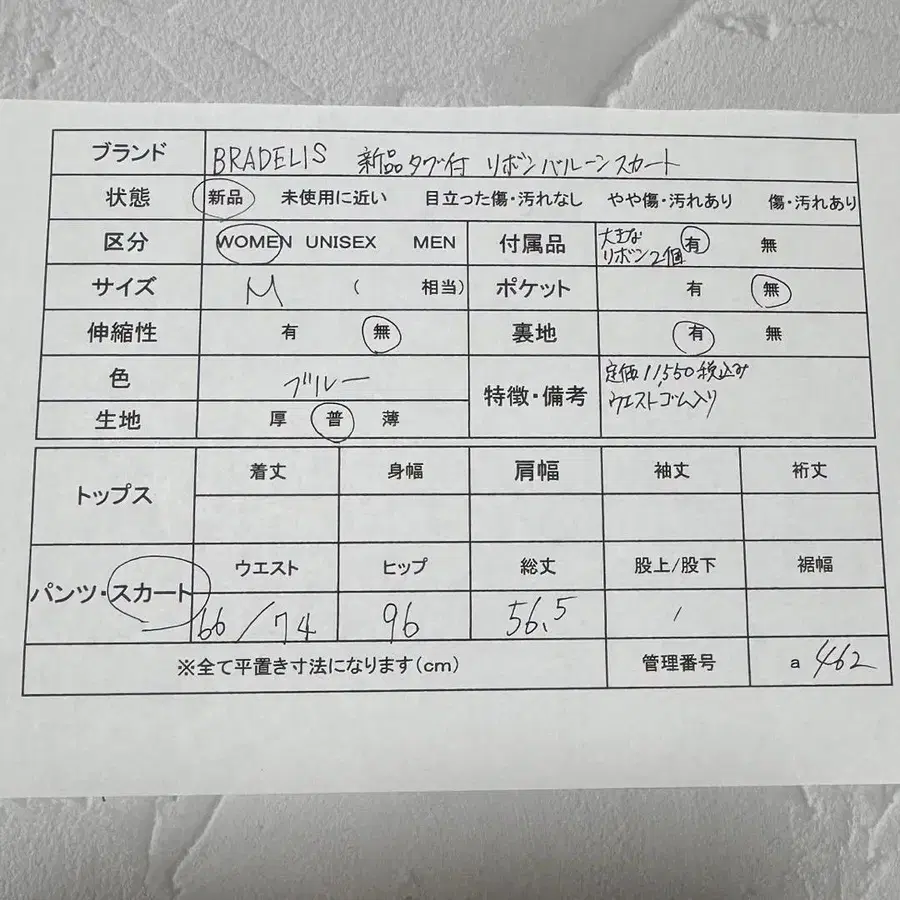 ブランド BRADELIS 新品タグ付 リボンバルーンスカート
状態 新品 未使用に近い 目立った傷・汚れなし やや傷・汚れあり 傷・汚れあり
区分 WOMEN UNISEX MEN 付属品 大きな リボン2個 有 無
サイズ M ( 相当) ポケット 有 無
伸縮性 有 無 裏地 有 無
色 ブルー 特徴・備考 定価11,550税込み
生地 厚 普 薄 ウエストゴム入り
トップス 着丈 身幅 肩幅 袖丈 裄丈
パンツ・スカート ウエスト ヒップ 総丈 股上/股下 裾幅
66/74 96 56.5 /
※全て平置き寸法になります(cm) 管理番号 a 462